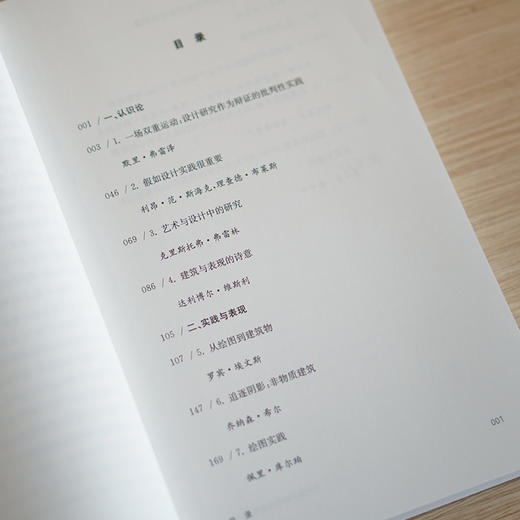 目 录
001 / 一、认识论
003 / 1. 一场双重运动：设计研究作为辩证的批判性实践
默里·弗雷泽
046 / 2. 假如设计实践很重要
利昂·范·斯海克，理查德·布莱斯
069 / 3. 艺术与设计中的研究
克里斯托弗·弗雷林
086 / 4. 建筑与表现的诗意
达利博尔·维斯利
105 / 二、实践与表现
107 / 5. 从绘图到建筑物
罗宾·埃文斯
147 / 6. 追逐阴影：非物质建筑
乔纳森·希尔
169 / 7. 绘图实践
佩里·库尔珀
001
目 录